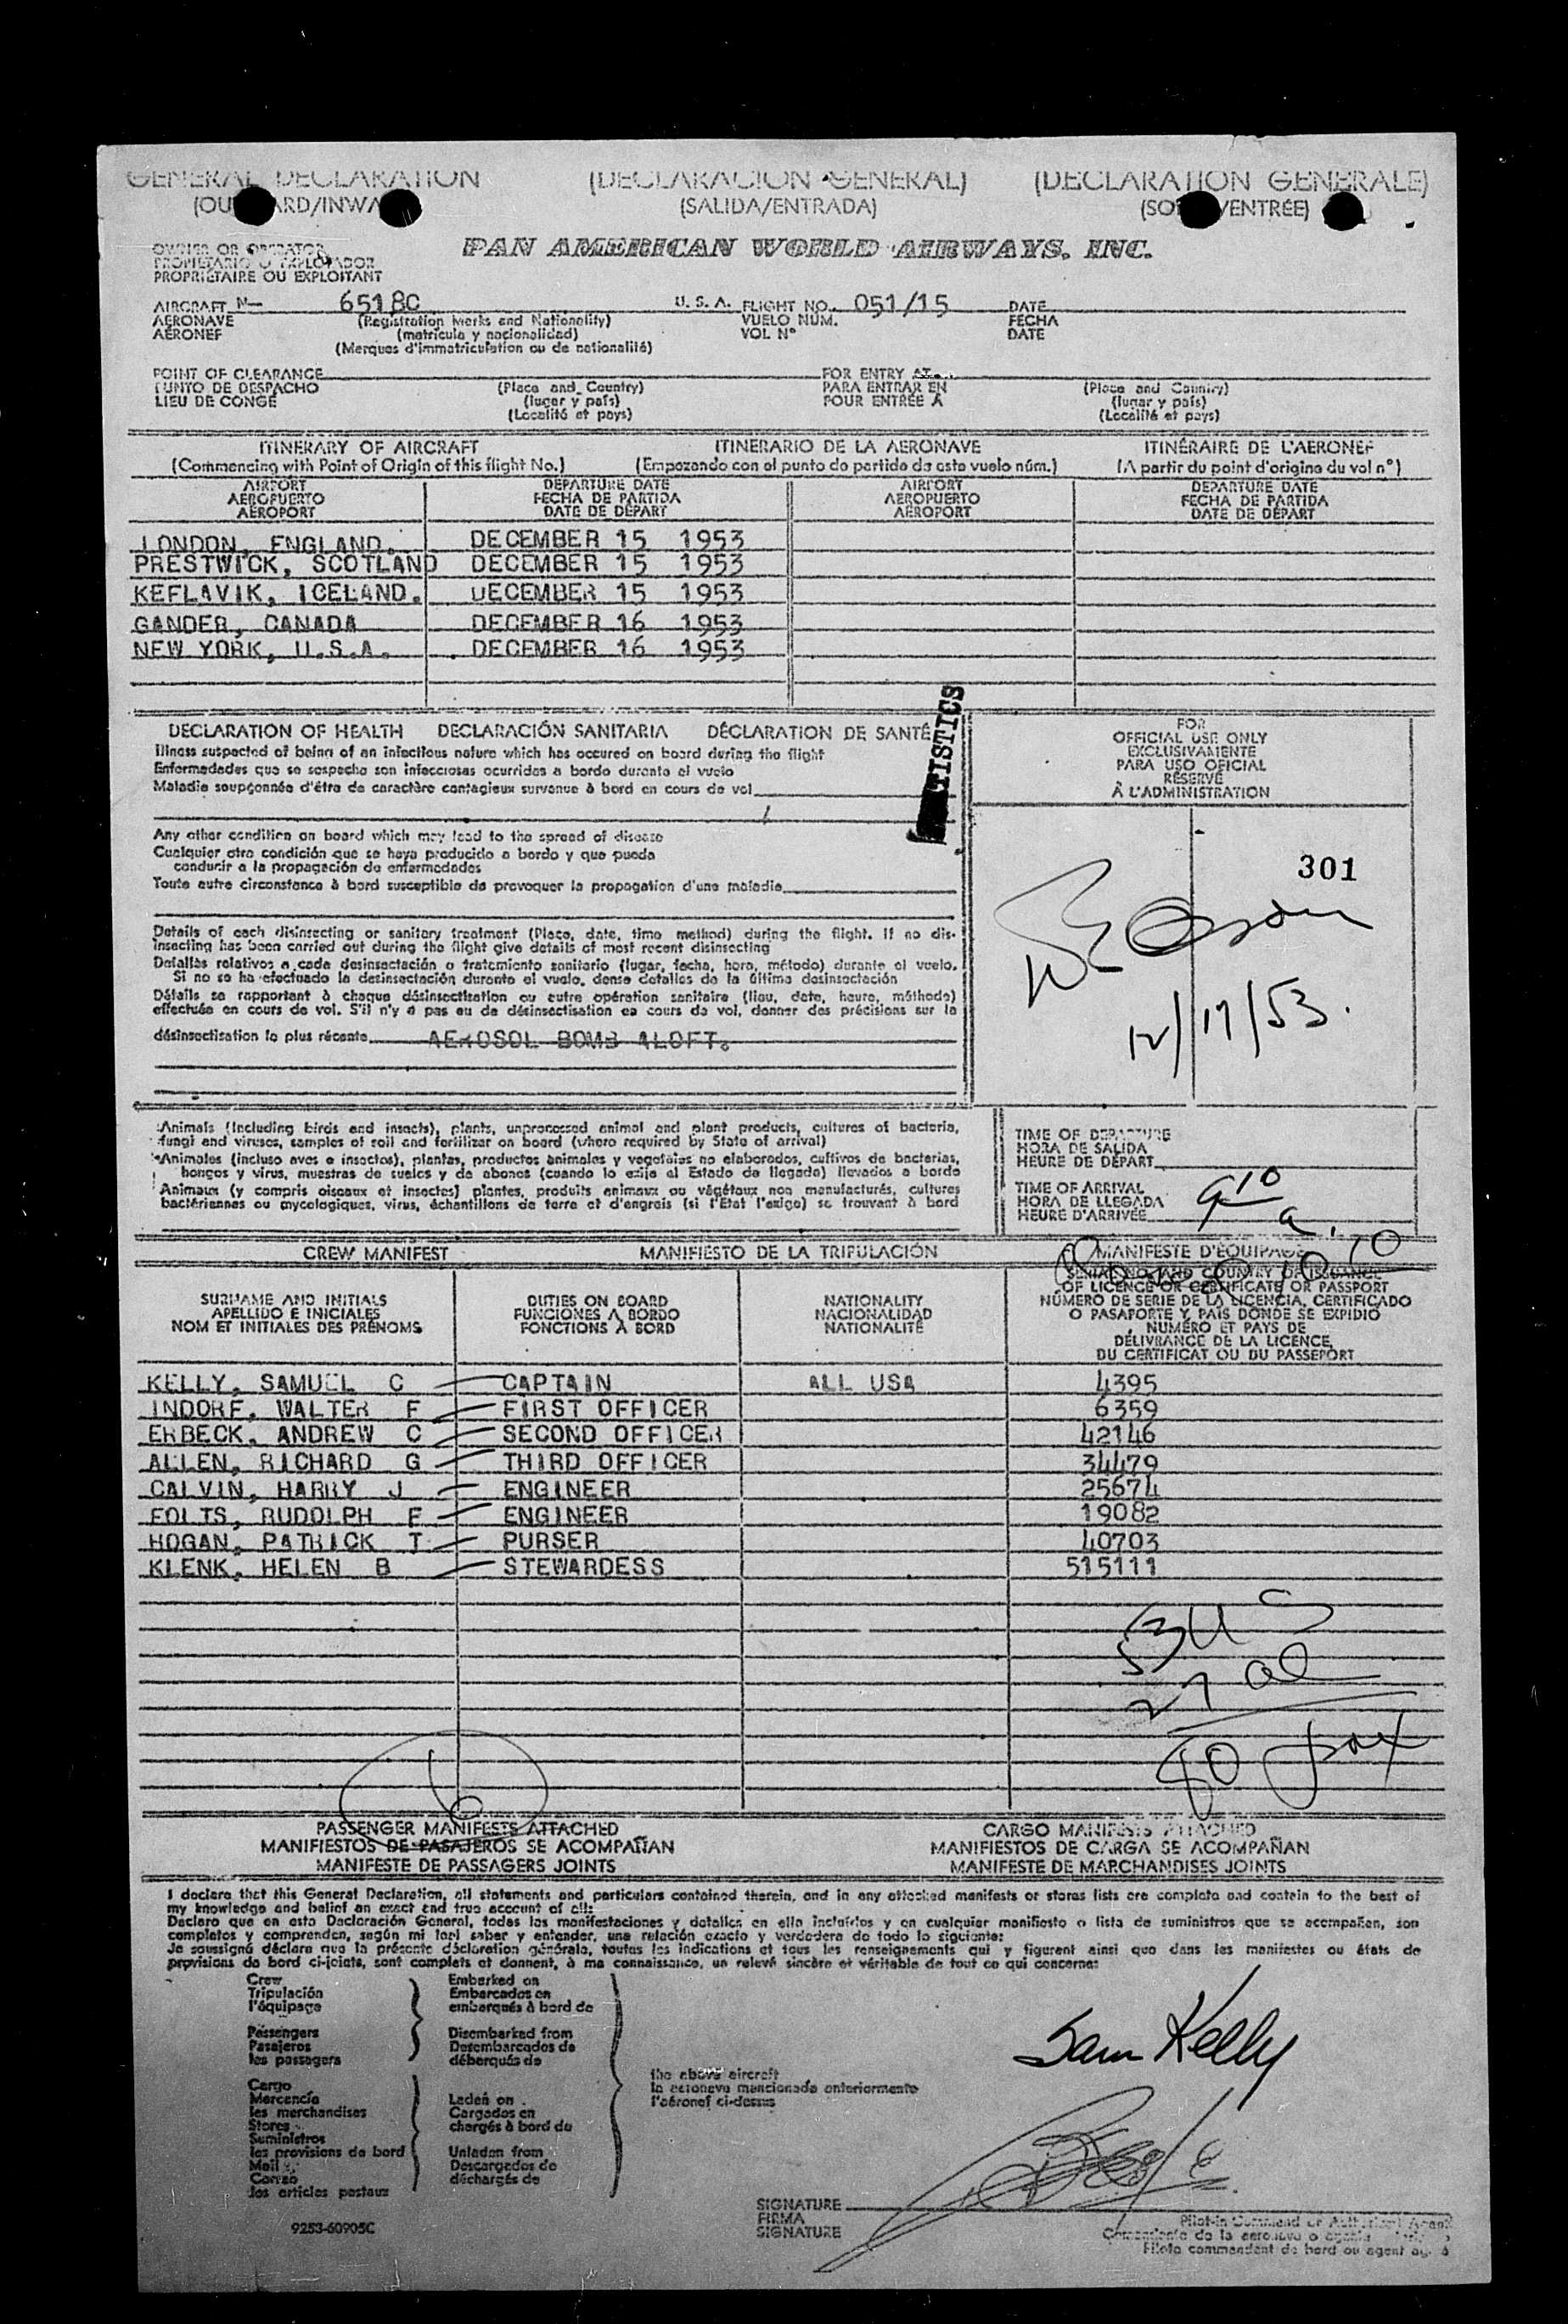 GENERAL DECLARATION (DECLARACION GENERAL) (DECLARATION GENERALE)
(SALIDA/ENTRADA) /ENTRÉE)
OWNER OR OPERATOR
PROPIETARIO O EXPLOTADOR
PROPRIÉTAIRE OU EXPLOITANT
PAN AMERICAN WORLD AIRWAYS, INC.
AIRCRAFT N- 6518C U. S. A. FLIGHT NO. 051/15 DATE
AERONAVE (Registration Marks and Nationality) VUELO NÚM. FECHA
AÉRONEF (matrícula y nacionalidad) VOL Nº DATE
(Marques d'immatriculation ou de nationalité)
POINT OF CLEARANCE FOR ENTRY AT
PUNTO DE DESPACHO (Place and Country) PARA ENTRAR EN (Place and Country)
LIEU DE CONGÉ (lugar y país) POUR ENTRÉE À (lugar y país)
(Localité et pays) (Localité et pays)
ITINERARY OF AIRCRAFT ITINERARIO DE LA AERONAVE ITINÉRAIRE DE L'AERONEF
(Commencing with Point of Origin of this flight No.) (Empezando con el punto de partida de este vuelo núm.) (A partir du point d'origine du vol nº)
AIRPORT DEPARTURE DATE AIRPORT DEPARTURE DATE
AEROPUERTO FECHA DE PARTIDA AEROPUERTO FECHA DE PARTIDA
AÉROPORT DATE DE DÉPART AÉROPORT DATE DE DÉPART
LONDON, ENGLAND. DECEMBER 15 1953
PRESTWICK, SCOTLAND DECEMBER 15 1953
KEFLAVIK, ICELAND. DECEMBER 15 1953
GANDER, CANADA DECEMBER 16 1953
NEW YORK, U.S.A. DECEMBER 16 1953
DECLARATION OF HEALTH DECLARACIÓN SANITARIA DÉCLARATION DE SANTÉ
Illness suspected of being of an infectious nature which has occured on board during the flight
Enfermedades que se sospecha son infecciosas ocurridas a bordo durante el vuelo
Maladie soupçonnée d'être de caractère contagieux survenue à bord en cours de vol
Any other condition on board which may lead to the spread of disease
Cualquier otra condición que se haya producido a bordo y que pueda
conducir a la propagación de enfermedades
Toute autre circonstance à bord susceptible de provoquer la propagation d'une maladie
Details of each disinsecting or sanitary treatment (Place, date, time method) during the flight. If no dis-
insecting has been carried out during the flight give details of most recent disinsecting
Detalles relativos a cada desinsectación o tratamiento sanitario (lugar, fecha, hora, método) durante el vuelo.
Si no se ha efectuado la desinsectación durante el vuelo, dense detalles de la última desinsectación
Détails se rapportant à chaque désinsectisation ou autre opération sanitaire (lieu, date, heure, méthode)
effectuée en cours de vol. S'il n'y a pas eu de désinsectisation en cours de vol, donner des précisions sur la
désinsectisation la plus récente AEROSOL BOMB ALOFT.
TISTICS
FOR
OFFICIAL USE ONLY
EXCLUSIVAMENTE
PARA USO OFICIAL
RÉSERVÉ
À L'ADMINISTRATION
301
12/17/53.
Animals (Including birds and insects), plants, unprocessed animal and plant products, cultures of bacteria,
fungi and viruses, samples of soil and fertilizer on board (where required by State of arrival)
Animales (incluso aves e insectos), plantas, productos animales y vegetales no elaborados, cultivos de bacterias,
hongos y virus, muestras de suelos y de abonos (cuando lo exija el Estado de llegada) llevados a bordo
Animaux (y compris oiseaux et insectes) plantes, produits animaux ou végétaux non manufacturés, cultures
bactériennes ou mycologiques, virus, échantillons de terre et d'engrais (si l'Etat l'exige) se trouvant à bord
TIME OF DEPARTURE
HORA DE SALIDA
HEURE DE DÉPART
TIME OF ARRIVAL
HORA DE LLEGADA 9 10 a
HEURE D'ARRIVÉE
CREW MANIFEST MANIFIESTO DE LA TRIPULACIÓN MANIFESTE D'ÉQUIPAGE
SURNAME AND INITIALS DUTIES ON BOARD NATIONALITY SERIAL NO. AND COUNTRY OF ISSUANCE
APELLIDO E INICIALES FUNCIONES A BORDO NACIONALIDAD OF LICENCE OR CERTIFICATE OR PASSPORT
NOM ET INITIALES DES PRÉNOMS FONCTIONS À BORD NATIONALITÉ NÚMERO DE SERIE DE LA LICENCIA, CERTIFICADO
O PASAPORTE Y PAÍS DONDE SE EXPIDIO
NUMÉRO ET PAYS DE
DÉLIVRANCE DE LA LICENCE,
DU CERTIFICAT OU DU PASSEPORT
KELLY, SAMUEL C CAPTAIN ALL USA 4395
INDORF, WALTER F FIRST OFFICER 6359
ERBECK, ANDREW C SECOND OFFICER 42146
ALLEN, RICHARD G THIRD OFFICER 34479
CALVIN, HARRY J ENGINEER 25674
FOLTS, RUDOLPH F ENGINEER 19082
HOGAN, PATRICK T PURSER 40703
KLENK, HELEN B STEWARDESS 515111
53 U S
27 al
80 pax
6
PASSENGER MANIFESTS ATTACHED CARGO MANIFESTS ATTACHED
MANIFIESTOS DE PASAJEROS SE ACOMPAÑAN MANIFIESTOS DE CARGA SE ACOMPAÑAN
MANIFESTE DE PASSAGERS JOINTS MANIFESTE DE MARCHANDISES JOINTS
I declare that this General Declaration, all statements and particulars contained therein, and in any attached manifests or stores lists are complete and contain to the best of
my knowledge and belief an exact and true account of all:
Declaro que en esta Declaración General, todas las manifestaciones y detalles en ella incluídos y en cualquier manifiesto o lista de suministros que se acompañen, son
completos y comprenden, según mi leal saber y entender, una relación exacta y verdadera de todo lo siguiente:
Je soussigné déclare que la présente déclaration générale, toutes les indications et tous les renseignements qui y figurent ainsi que dans les manifestes ou états de
provisions de bord ci-joints, sont complets et donnent, à ma connaissance, un relevé sincère et véritable de tout ce qui concerne:
Crew Embarked on
Tripulación Embarcados en
l'équipage embarqués à bord de
Passengers Disembarked from
Pasajeros Desembarcados de
les passagers débarqués de
Cargo
Mercancía Laden on
les merchandises Cargados en
Stores chargés à bord de
Suministros
les provisions de bord Unladen from
Mail Descargados de
Correo déchargés de
les articles postaux
the above aircraft
la aeronave mencionada anteriormente
l'aéronef ci-dessus
Sam Kelly
SIGNATURE
FIRMA
SIGNATURE
Pilot-in Command or Authorized Agent
Comandante de la aeronave o agente
Pilote commandant de bord ou agent
9253-60905C